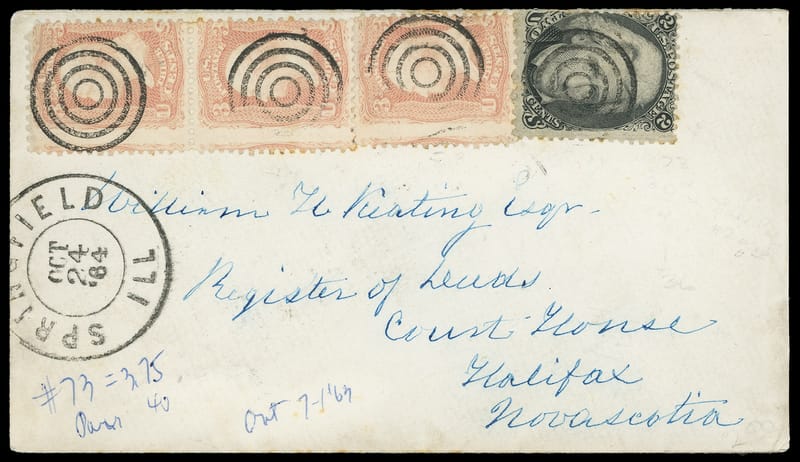 U.S. POSTAGE
SPRINGFIELD ILL
OCT
24
'64
William H Keating Esqr.
Register of Deeds
Court House
Halifax
Novascotia
#73 = 3.75
40
Oct